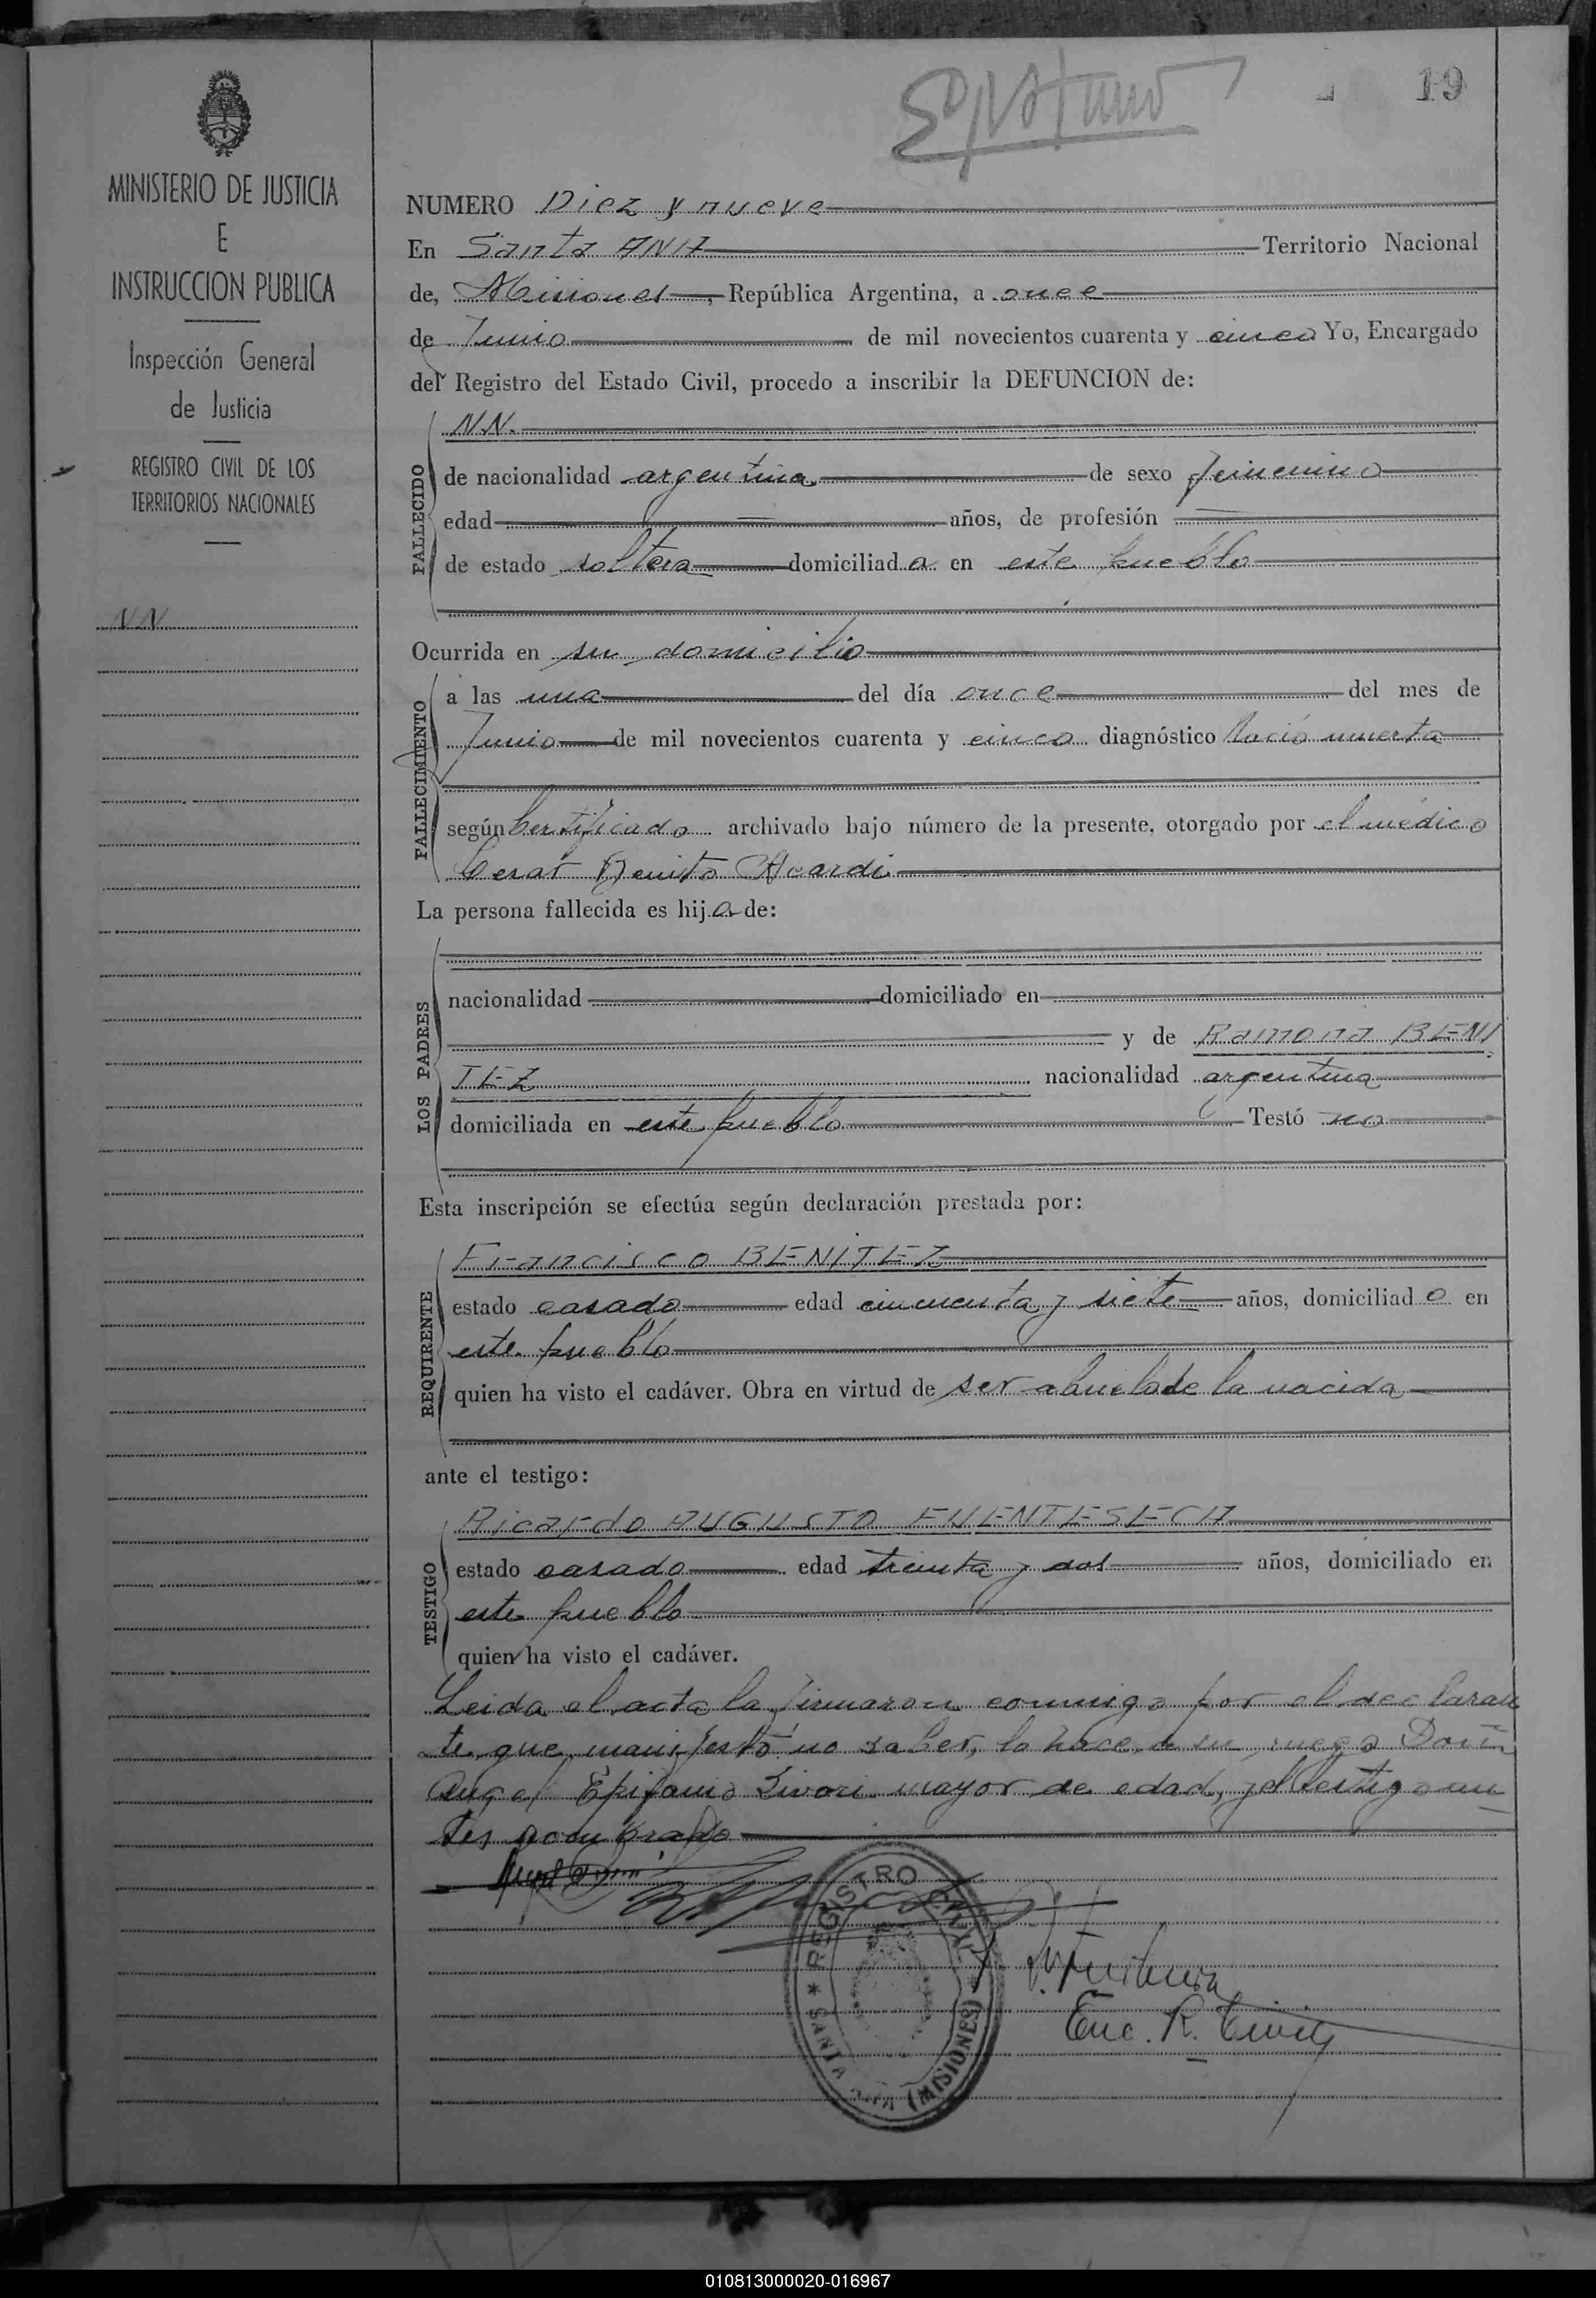 19
MINISTERIO DE JUSTICIA
E
INSTRUCCION PUBLICA
Inspección General
de Justicia
REGISTRO CIVIL DE LOS
TERRITORIOS NACIONALES
NN
NUMERO Diez y nueve
En Santa ANA Territorio Nacional
de, Misiones, República Argentina, a once
de Junio de mil novecientos cuarenta y cinco Yo, Encargado
del Registro del Estado Civil, procedo a inscribir la DEFUNCION de:
FALLECIDO
N.N.
de nacionalidad argentina de sexo femenino
edad años, de profesión
de estado soltera domiciliada en este pueblo
Ocurrida en su domicilio
FALLECIMIENTO
a las una del día once del mes de
Junio de mil novecientos cuarenta y cinco diagnóstico Nació muerta
según Certificado archivado bajo número de la presente, otorgado por el médico
Cesar Benito Acardi
La persona fallecida es hija de:
LOS PADRES
nacionalidad domiciliado en
y de Ramona BENI
TEZ nacionalidad argentina
domiciliada en este pueblo Testó no
Esta inscripción se efectúa según declaración prestada por:
REQUIRENTE
Francisco BENITEZ
estado casado edad cincuenta y siete años, domiciliado en
este pueblo
quien ha visto el cadáver. Obra en virtud de ser abuelo de la nacida
ante el testigo:
TESTIGO
Ricardo AUGUSTO FUENTESECA
estado casado edad treinta y dos años, domiciliado en
este pueblo
quien ha visto el cadáver.
Leida el acta la firmaron conmigo por el declaran
te que manifestó no saber, lo hace a su ruego Don
Angel Epifanio Livori mayor de edad, y el testigo an
tes nombrado
REGISTRO CIVIL
SANTA ANA (MISIONES)
Enc. R. Civil
010813000020-016967